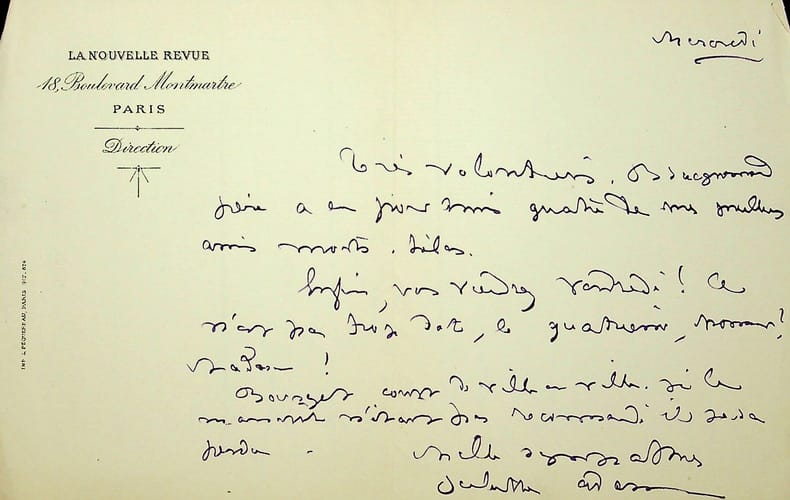 LA NOUVELLE REVUE
18, Boulevard Montmartre
PARIS
Direction
Mercredi
Très volontiers.
père a eu pour amis quatre de mes meilleurs
amis morts. hélas.
Enfin, vous viendrez vendredi! Ce
n'est pas trop tôt, le quatrième,
Madame!
Bourget court de ville en ville. si le
manuscrit n'était pas recommandé il sera
perdu
Mille sympathies
Juliette Adam